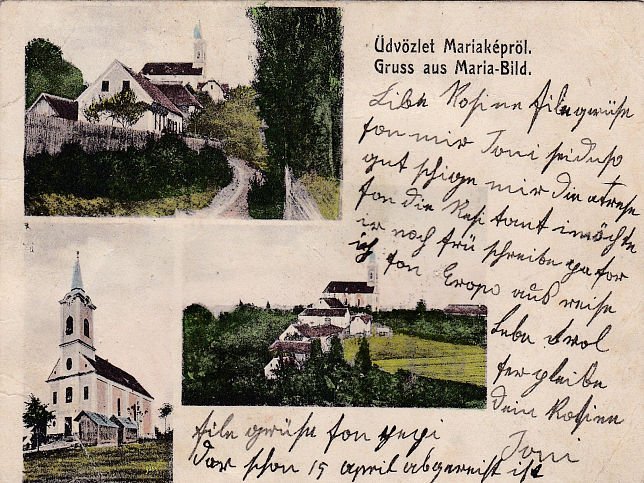 Üdvözlet Mariaképről.
Gruss aus Maria-Bild.
Libe Rosine file grüse
fon mir Toni sei du so
gut schige mir die atrese
fon die Resi tant i möchte
ir noch frü schreibe
ich fon Eropa aus reise
Lebe wol
fer gleibe
dein
Toni
file grüse fon pepi
Dar schon 15 april abgereist ist